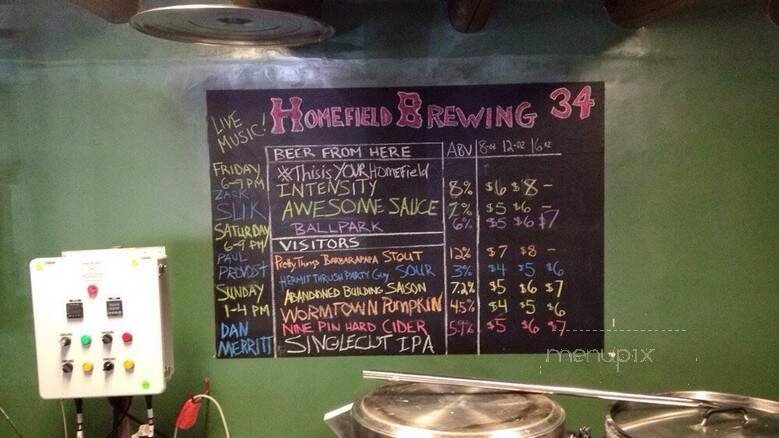 HOMEFIELD BREWING 34
LIVE
MUSIC!
FRIDAY
6-7 PM
ZACK
SLIK
SATURDAY
6-9 PM
PAUL
PROVOST
SUNDAY
1-4 PM
DAN
MERRITT
BEER FROM HERE ABV 8-oz 12-oz 16oz
#ThisisYOURHomefield
INTENSITY 8% $6 $8 -
AWESOME SAUCE 7% $5 $6 -
BALLPARK 6% $5 $6 $7
VISITORS
Pretty Things BARBARAPAPA STOUT 12% $7 $8 -
HERMIT THRUSH PARTY Guy SOUR 3% $4 $5 $6
ABANDONED BUILDING SAISON 7.2% $5 $6 $7
WORMTOWN PUMPKIN 4.5% $4 $5 $6
NINE PIN HARD CIDER $5 $6 $7
SINGLECUT IPA
menupix